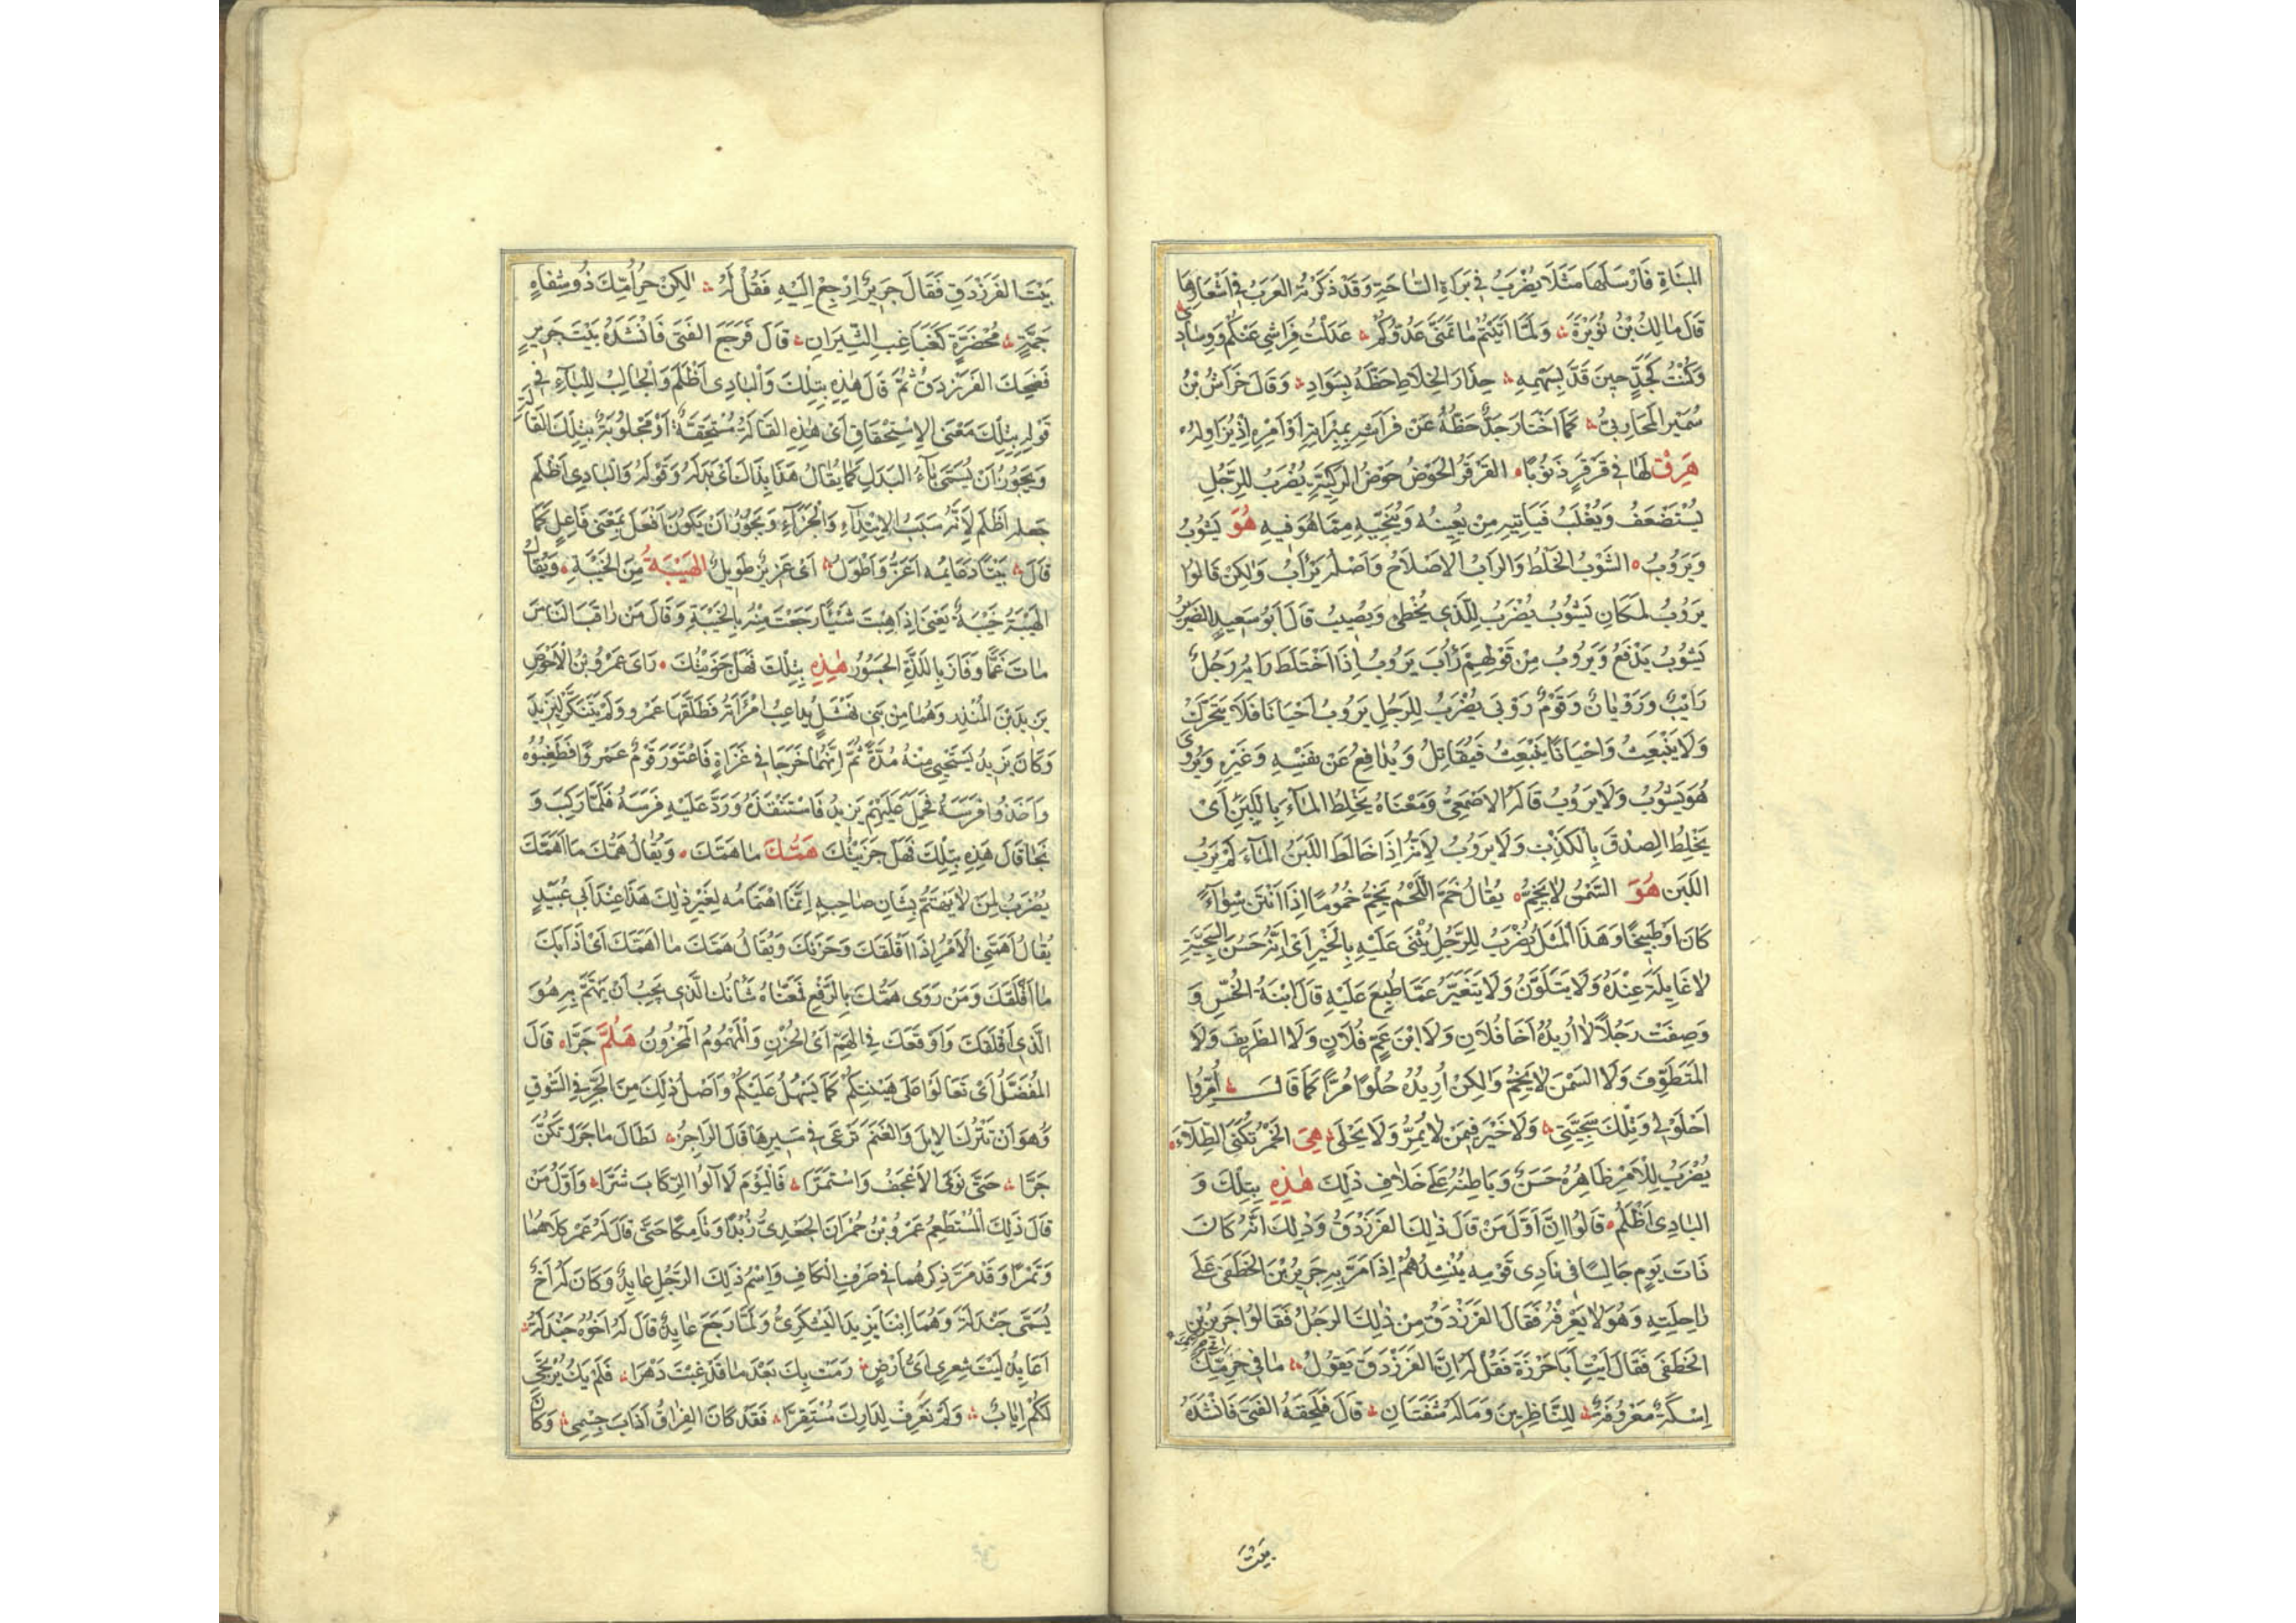 المباءة فارسلها مثلا يضرب في براءة الساحة وقد ذكرته العرب في اشعارها
قال مالك بن نويرة ولما اتيتم ما تمنى عدوكم عدلت فراشي عنكم ووسادي
وكنت كجد حين قد بسهمه حذار الخلاط حظه بسواد وقال خراش بن
سمير المحاربي كما اختار جد حظه عن فراشه بمبراته او امره اذ يزاوله
هرق لها في قرقر ذنوبا القرقر الحوض حوض الركية يضرب للرجل
يستضعف ويغلب فياتيه من يعينه وينجيه مما هو فيه هو يشوب
ويروب الشوب الخلط والراب الاصلاح واصله يرأب ولكن قالوا
يروب لمكان يشوب يضرب للذي يخطئ ويصيب قال ابو سعيد الضرير
يشوب يدفع ويروب من قولهم رأب يروب اذا اختلط رايه رجل
رايب وروبان وقوم روبى يضرب للرجل يروب احيانا فلا يتحرك
ولا ينبعث واحيانا ينبعث فيقاتل ويدافع عن نفسه وغيره ويروى
هو يشوب ولا يروب قاله الاصمعي ومعناه يخلط الماء باللبن اى
يخلط الصدق بالكذب ولا يروب لانه اذا خالط اللبن الماء لم يرب
اللبن هو السمن لا يخم يقال خم اللحم يخم خموما اذا انتن شواء
كان او طبيخا وهذا المثل يضرب للرجل يثنى عليه بالخير اى انه حسن السجية
لا غايلة عنده ولا يتلون ولا يتغير عما طبع عليه قال ابنة الخس و
وصفت رجلا لا اريده اخا فلان ولا ابن عم فلان ولا الظريف ولا
المتظرف ولا السمن لا يخم ولكن اريده حلوا مرا كما قال أمر وا
احلولي وتلك سجيتي ولا خير فيمن لا يمر ولا يحلى هي الخمر تكنى الطلاء
يضرب للامر ظاهره حسن وباطنه على خلاف ذلك هذه بتلك و
البادى اظلم قالوا ان اول من قال ذلك الفرزدق وذلك انه كان
ذات يوم جالسا في نادى قومه ينشدهم اذ مر به جرير بن الخطفى على
راحلته وهو لا يعرفه فقال الفرزدق من ذلك الرجل فقالوا جرير بن
الخطفى فقال ايت ابا حرزة فقل له ان الفرزدق يقول ما في حرمك
اسكة معروفة للناظرين وما له شفتان قال فلحقه الفتى فانشده
بيت
بيت الفرزدق فقال جرير ارجع اليه فقل له لكن حر امك ذو شفاه
جمة محضرة كغباغب الثيران قال فرجع الفتى فانشده بيت جرير
فضحك الفرزدق ثم قال هذه بتلك والبادى اظلم والجالب للباء في
قوله بتلك معنى الاستحقاق اى هذه القالة مستحقة او مجلوبة بتلك القالة
ويجوز ان يسمى باء البدل كما يقال هذا بذاك اى بدله وقوله والبادى اظلم
جعله اظلم لانه سبب الابتداء والجزاء ويجوز ان يكون افعل بمعنى فاعل كما
قال بيتا دعايمه اعز واطول اى عزيز طويل الهيبة من الخيبة ويقال
الهيبة خيبة يعنى اذا هبت شيئا رجعت منه بالخيبة وقال من راقب الناس
مات غما وفاز باللذة الجسور هذه بتلك فهل جزيتك راى عمرو بن الاحوص
يزيد بن المنذر وهما من بني نهشل يداعب امرأته فطلقها عمرو ولم يتنكر ليزيد
وكان يزيد يستحيي منه مدة ثم انهما خرجا في غزاة فاعتور قوم عمروا فطعنوه
واخذوا فرسه فحمل عليهم يزيد فاستنقذه ورد عليه فرسه فلما ركب و
نجا قال هذه بتلك فهل جزيتك همك ما همك ويقال همك ما اهمك
يضرب لمن لا يهتم بشان صاحبه انما اهتمامه لغير ذلك هذا عند ابي عبيد
يقال اهمني الامر اذا اقلقك وحزنك ويقال همك ما اهمك اى اذابك
ما اقلقك ومن روى همك بالرفع فمعناه شانك الذى يجب ان يهتم به هو
الذى اقلقك واوقعك في الهم اى الحزن والمهموم المحزون هلم جرا قال
المفضل اى تعالوا على هينتكم كما يسهل عليكم واصل ذلك من الجر في السوق
وهو ان تترك الابل والغنم ترعى في سيرها قال الراجز لطال ما جررتكن
جرا حتى نوى الاعجف واستمرا فاليوم لا آلو الركاب شرا واول من
قال ذلك المستطعم عمرو بن حمران الجعدى زبدا وتامكا حتى قال له عمر كلاهما
وتمرا وقد مر ذكرهما في حرف الكاف واسم ذلك الرجل عايد وكان له اخ
يسمى جندلة وهما ابنا يزيد اليشكرى ولما رجع عايد قال له اخوه جندلة
اعايد ليت شعرى اى ارض رمت بك بعد ما قد غبت دهرا فلم يك يرتجى
لكم اياب ولم نعرف لدارك مستقرا فقد كان الفراق اذاب جسمي وكان